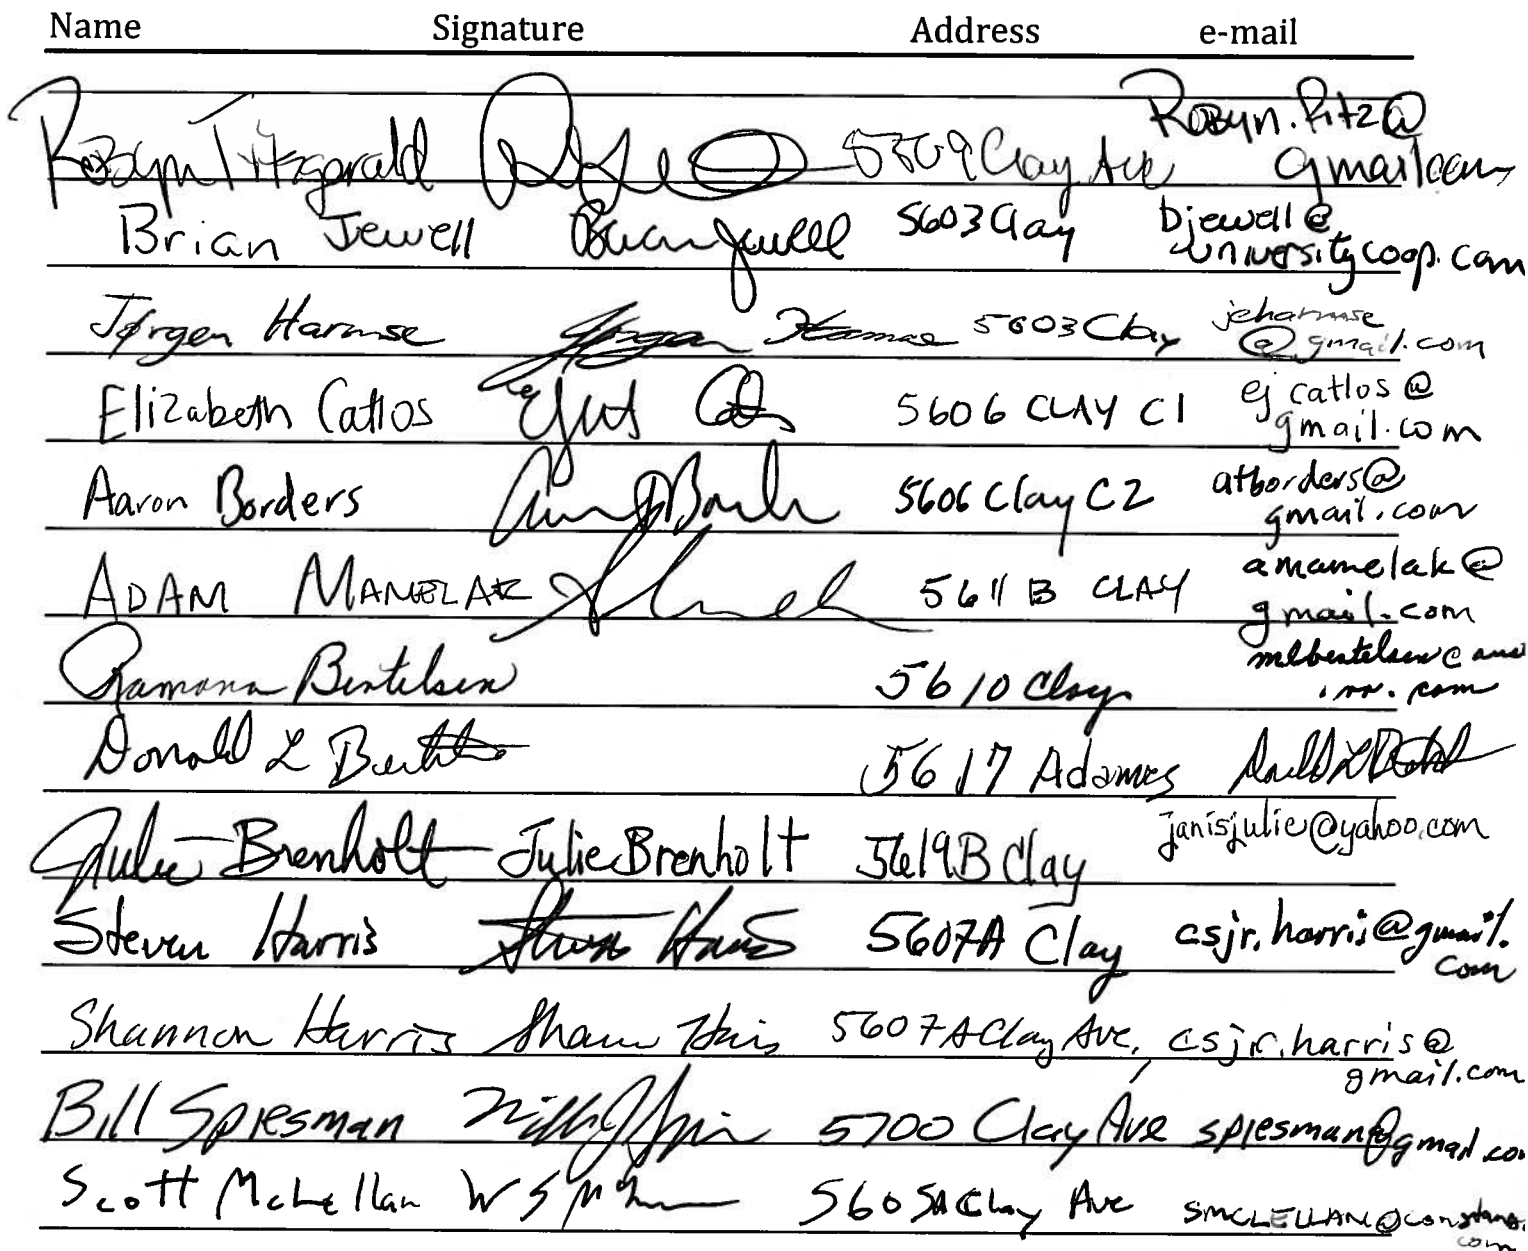 Name Signature Address e-mail
Robyn Fitzgerald 5309 Clay Ave Robyn.Fitz@
gmail.com
Brian Jewell Brian Jewell 5603 Clay bjewell@
universitycoop.com
Jørgen Harmse Jørgen Harmse 5603 Clay jeharmse
@gmail.com
Elizabeth Catlos 5606 CLAY C1 ejcatlos@
gmail.com
Aaron Borders 5606 Clay C2 atborders@
gmail.com
ADAM MAMELAK 5611 B CLAY amamelak@
gmail.com
Ramona Bertelsen 5610 Clay mlbertelsen@aus
.rr.com
Donald L 5617 Adams
Julie Brenholt Julie Brenholt 5619B Clay janisjulie@yahoo.com
Steven Harris Steven Harris 5607A Clay csjr.harris@gmail.
com
Shannon Harris 5607A Clay Ave, csjr.harris@
gmail.com
Bill Spiesman 5700 Clay Ave spiesman@gmail.co
Scott McLellan 5605A Clay Ave
com